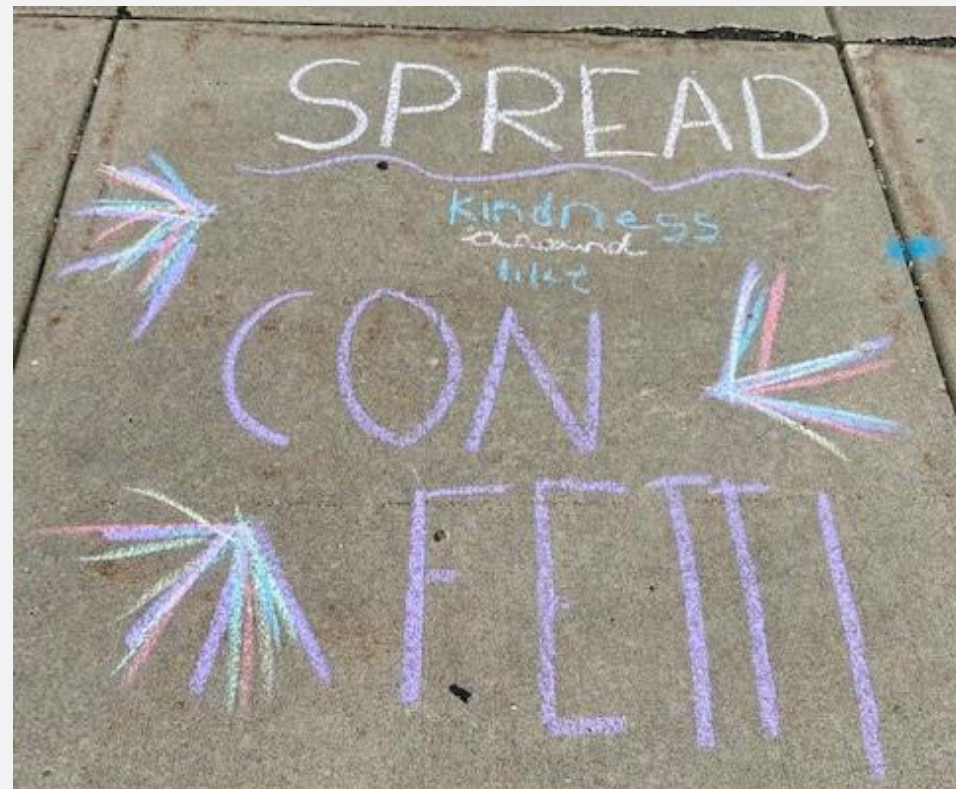 SPREAD
kindness
around
like
CON
FETTI